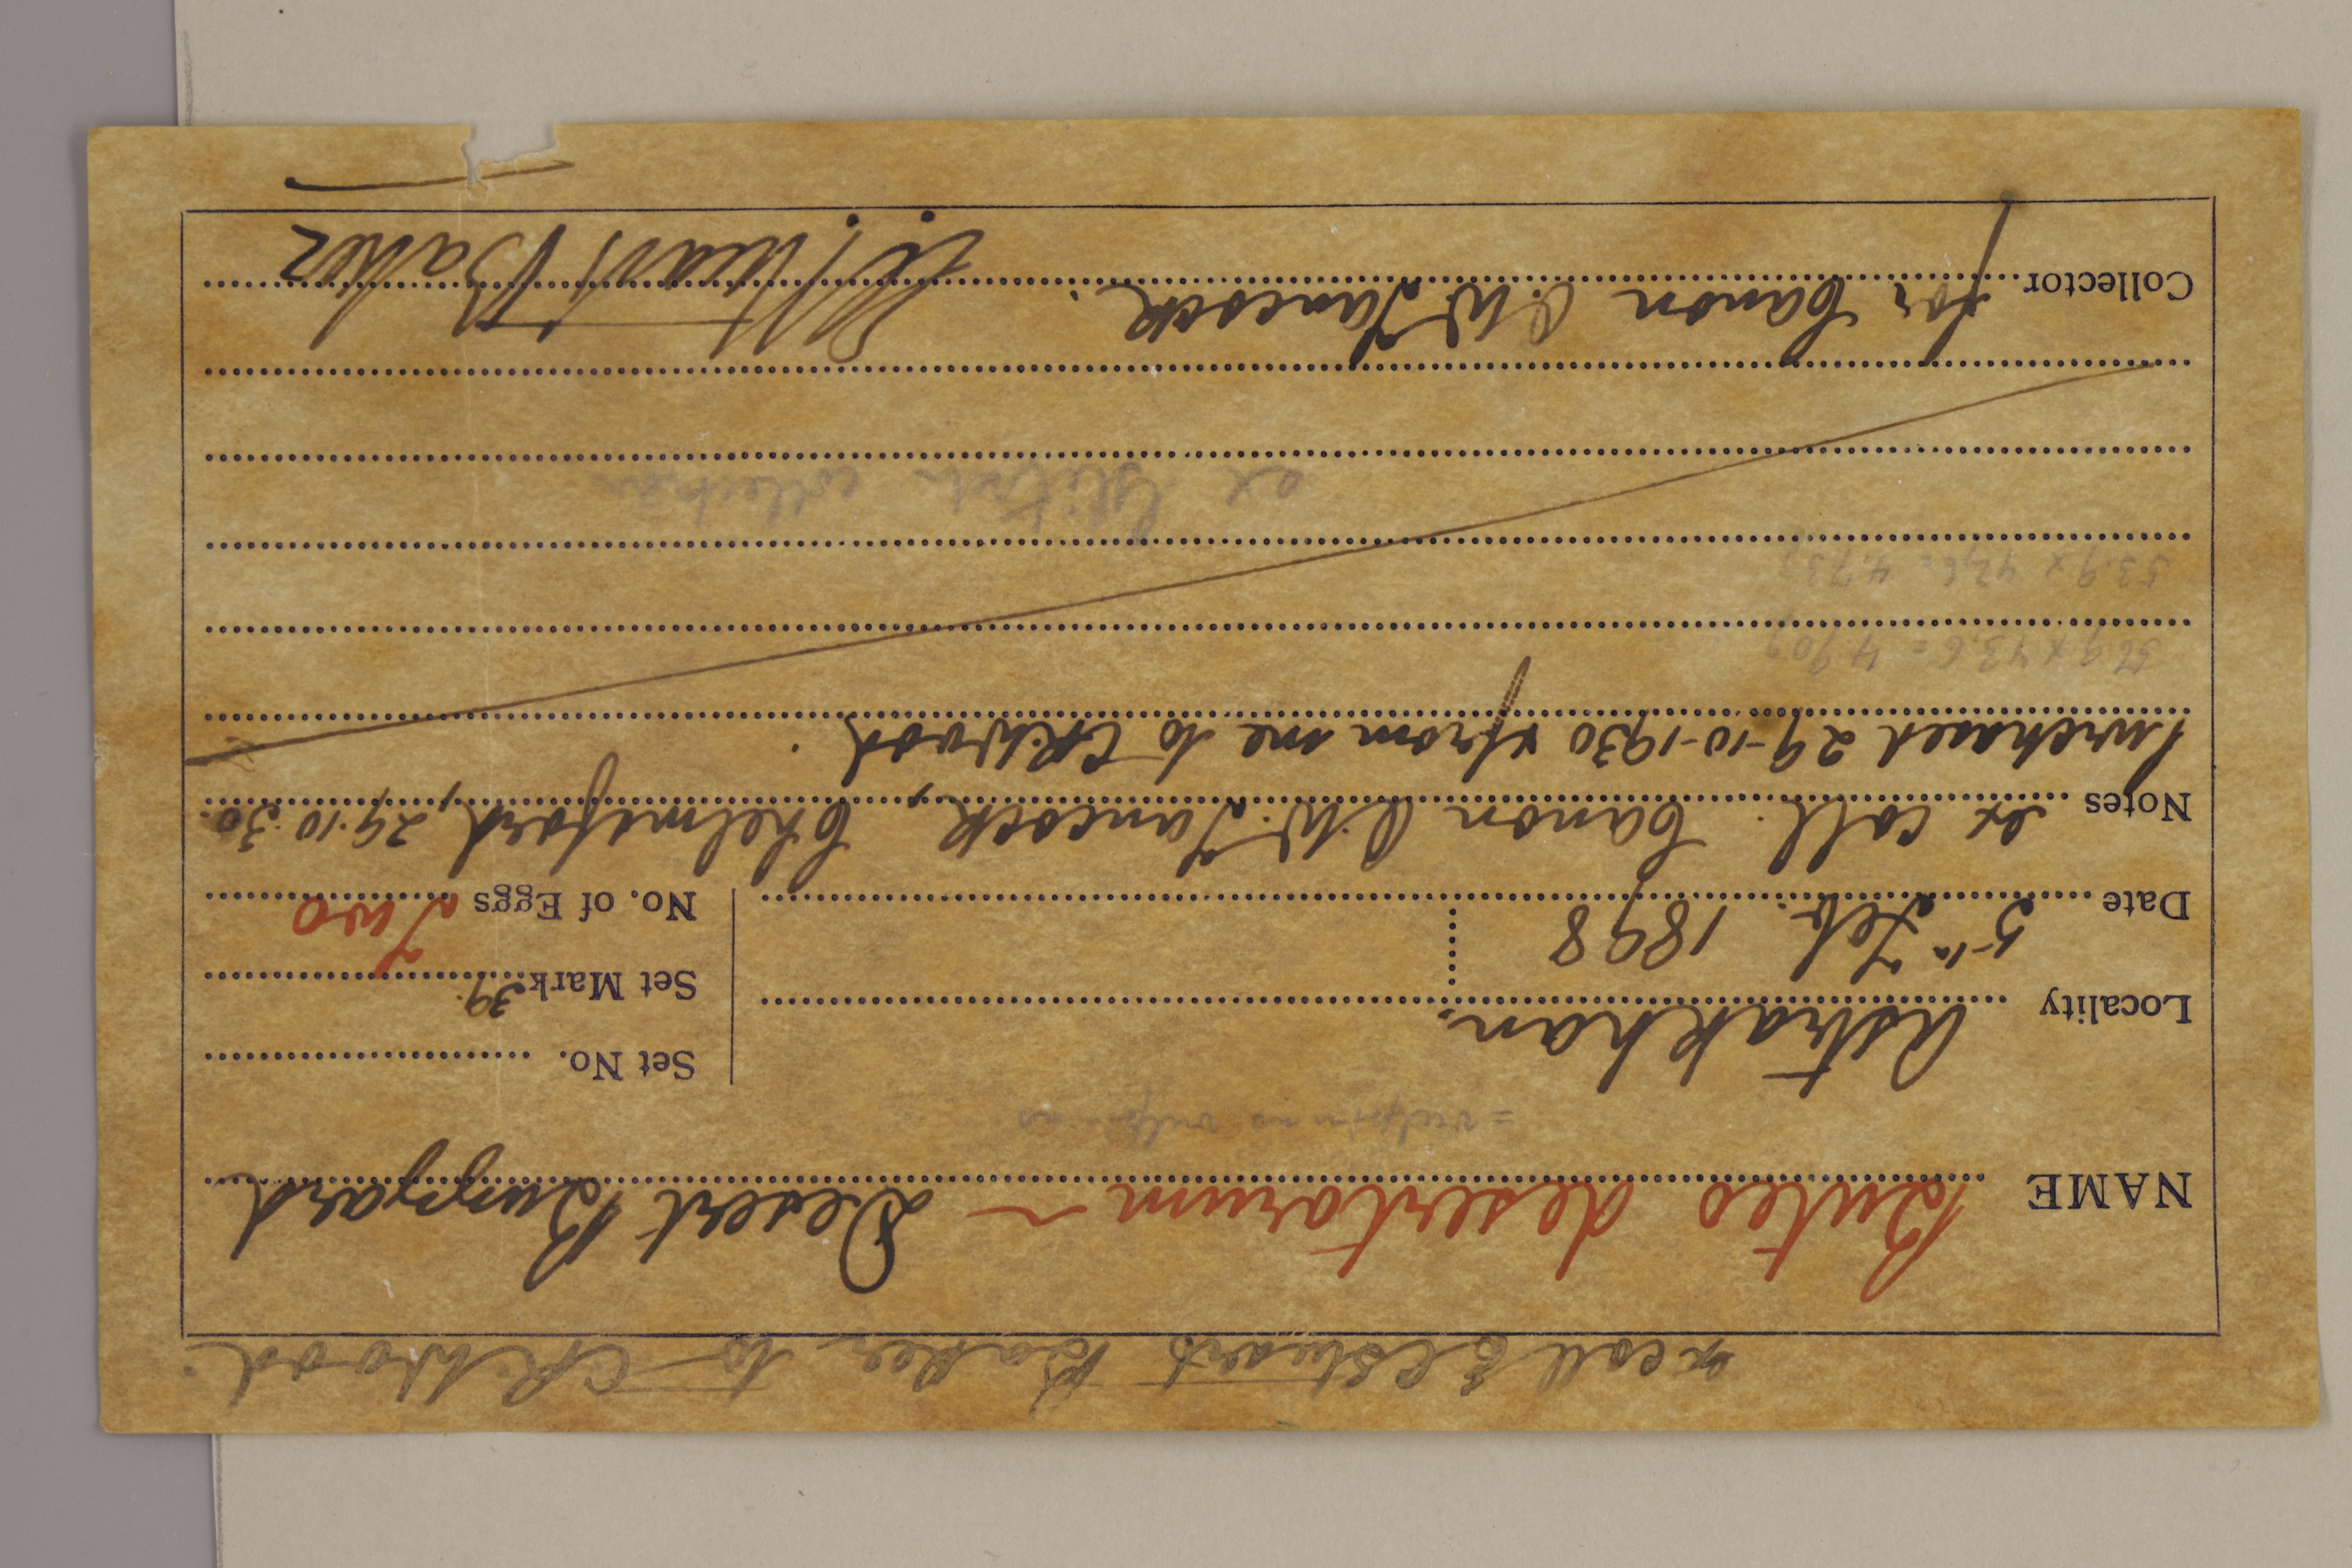 ex coll E C Stuart Baker to CR.Wood.
NAME Buteo desertorum ~ Desert Buzzard
= vulpinus vulpinus
Locality Astrakhan.
Set No.
Set Mark 39.
Date 5th Feb. 1898
No. of Eggs Two
Notes ex coll. Canon O.W. Tancock, Chelmsford, 29.10.30.
Purchased 29-10-1930 & from me to CR.Wood.
56.9 x 43.6 = 4.909
53.9 x 42.6 = 4.73
collection
Collector for Canon O.W Tancock. Stuart Baker